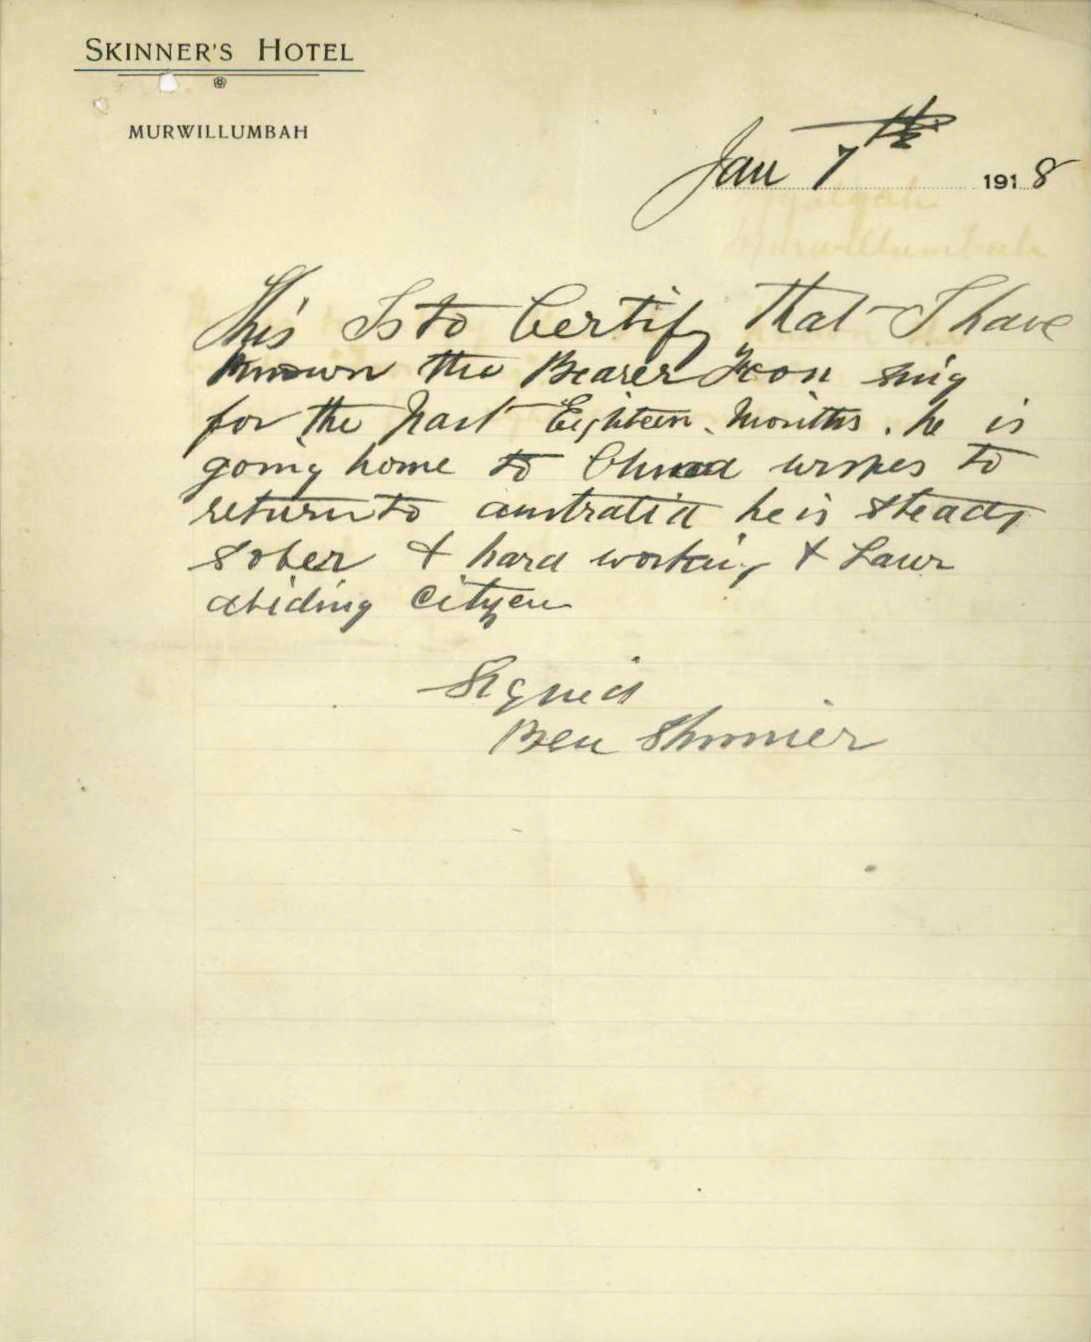 SKINNER'S HOTEL
MURWILLUMBAH
Jan 7th 1918
This Is to Certify that I have
known the Bearer Hon sing
for the past Eighteen Months. he is
going home to China wishes to
return to australia he is steady
sober & hard working & Law
abiding citizen
Signed
Ben